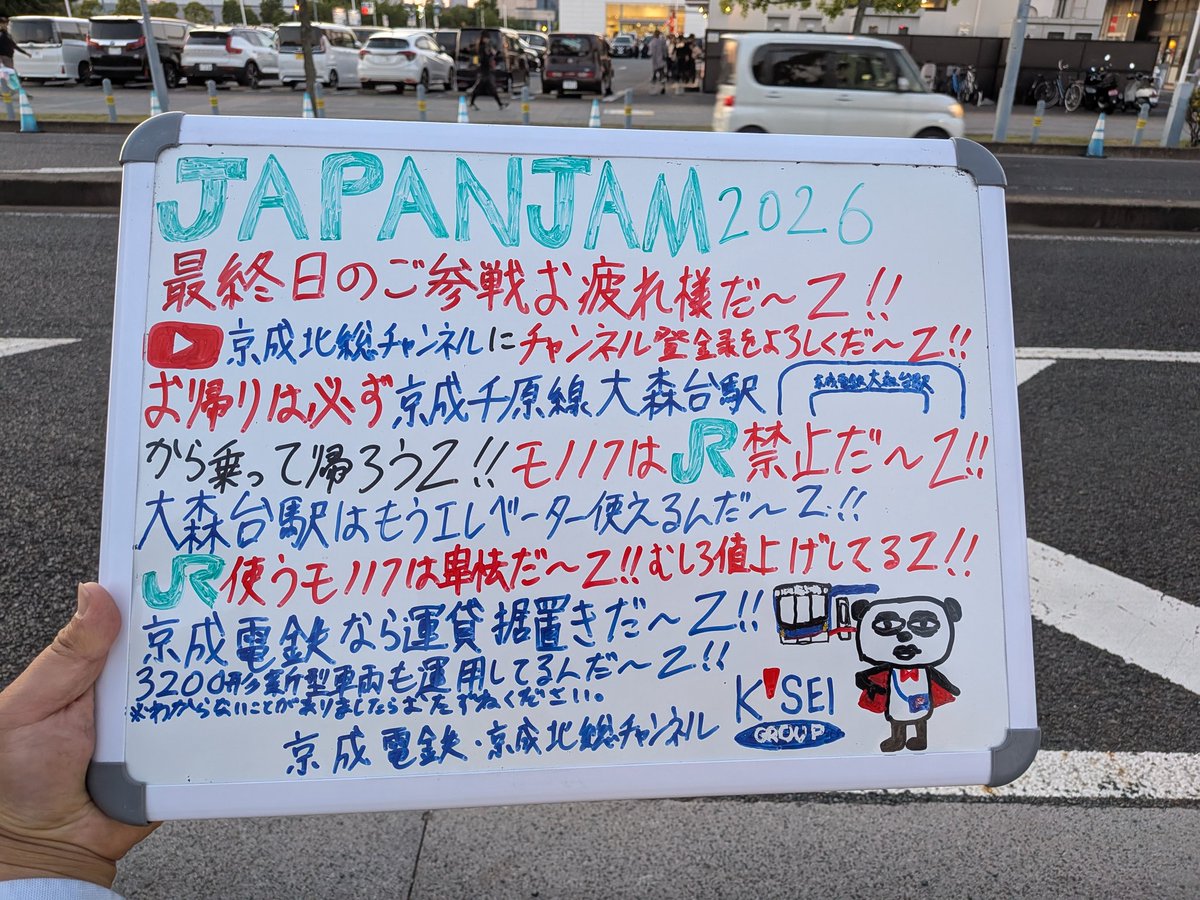 JAPANJAM 2026
最終日のご参戦お疲れ様だ〜Z!!
京成北総チャンネルにチャンネル登録をよろしくだ〜Z!!
お帰りは必ず京成千原線大森台駅
京成電鉄大森台駅
から乗って帰ろうZ!! モノノフはJR禁止だ〜Z!!
大森台駅はもうエレベーター使えるんだ〜Z!!
JR使うモノノフは卑怯だ〜Z!!むしろ値上げしてるZ!!
京成電鉄なら運賃据置きだ〜Z!!
3200形新型車両も運用してるんだ〜Z!!
※わからないことがありましたらおたずねください。
K'SEI
GROUP
京成電鉄・京成北総チャンネル